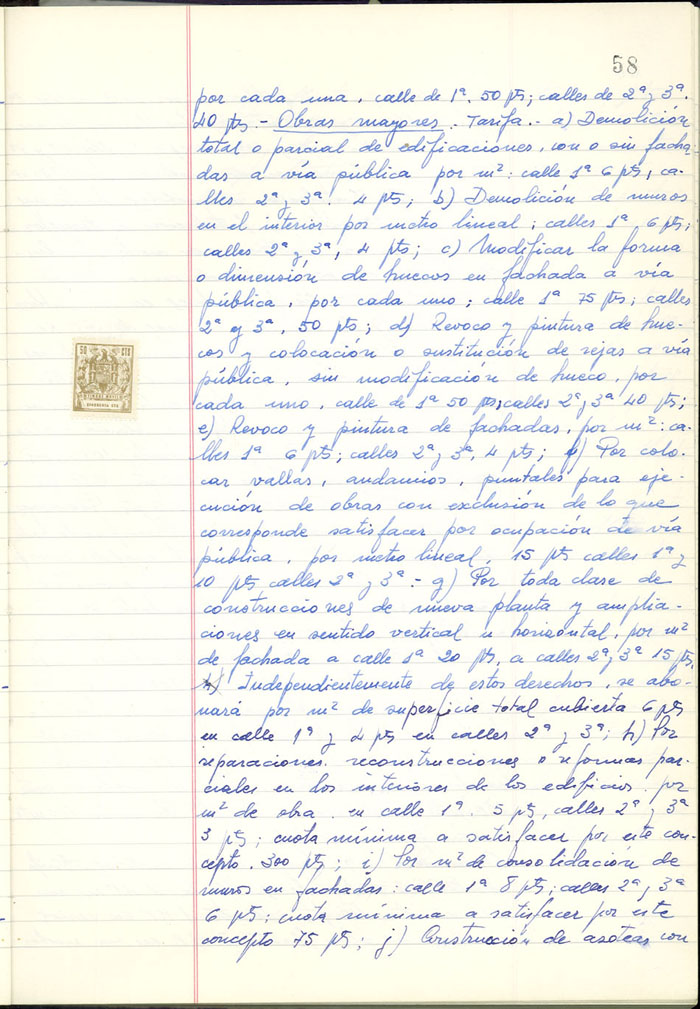 58
por cada una, calle de 1ª, 50 pts; calles de 2ª y 3ª.
40 pts.- Obras mayores. Tarifa.- a) Demolición
total o parcial de edificaciones, con o sin facha-
das a vía pública por m²: calle 1ª 6 pts, ca-
lles 2ª y 3ª. 4 pts; b) Demolición de muros
en el interior por metro lineal; calles 1ª 6 pts;
calles 2ª y 3ª, 4 pts; c) Modificar la forma
o dimensión de huecos en fachada a vía
pública, por cada uno; calle 1ª 75 pts; calles
2ª y 3ª, 50 pts; d) Revoco y pintura de hue-
cos y colocación o sustitución de rejas a vía
pública, sin modificación de hueco, por
cada uno, calle de 1ª 50 pts; calles 2ª y 3ª 40 pts;
e) Revoco y pintura de fachadas, por m²: ca-
lles 1ª 6 pts; calles 2ª y 3ª, 4 pts; f) Por colo-
car vallas, andamios, puntales para eje-
cución de obras con exclusión de lo que
corresponde satisfacer por ocupación de vía
pública, por metro lineal, 15 pts calles 1ª y
10 pts calles 2ª y 3ª.- g) Por toda clase de
construcciones de nueva planta y amplia-
ciones en sentido vertical u horizontal, por m²
de fachada a calle 1ª 20 pts, a calles 2ª y 3ª 15 pts.
Independientemente de estos derechos, se abo-
nará por m² de superficie total cubierta 6 pts
en calle 1ª y 4 pts en calles 2ª y 3ª; h) Por
reparaciones, reconstrucciones o reformas par-
ciales en los interiores de los edificios, por
m² de obra, en calle 1ª. 5 pts, calles 2ª y 3ª
3 pts; cuota mínima a satisfacer por este con-
cepto, 300 pts; i) Por m² de consolidación de
muros en fachadas: calle 1ª 8 pts; calles 2ª y 3ª
6 pts; cuota mínima a satisfacer por este
concepto 75 pts; j) Construcción de azoteas con
50 CTS